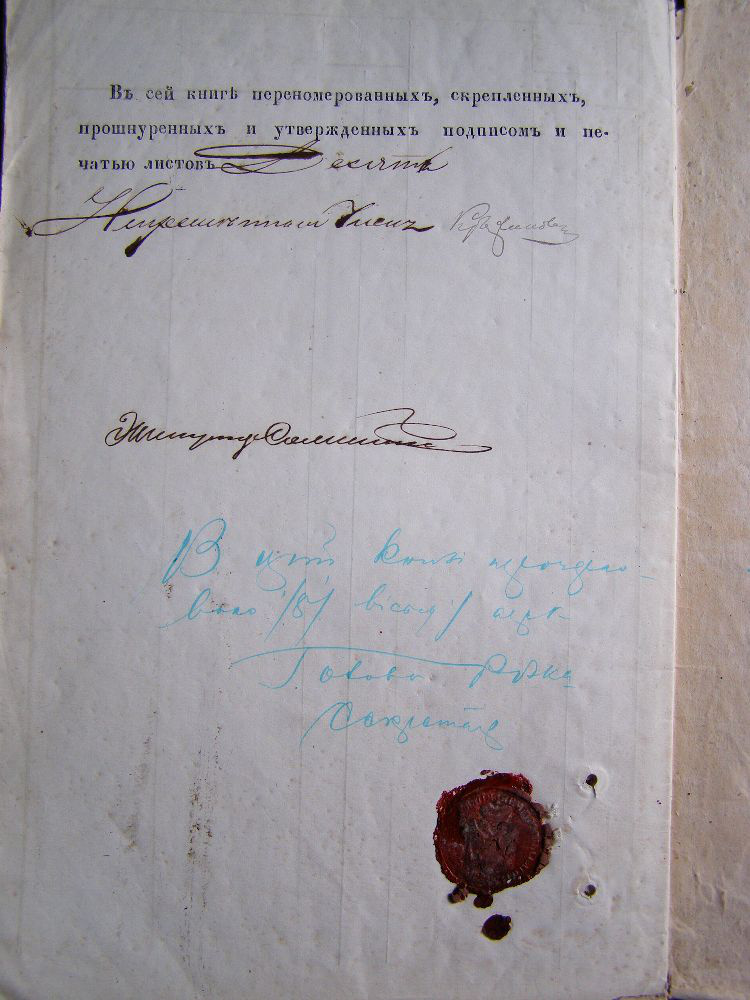 Въ сей книгѣ переномерованныхъ, скрепленныхъ,
прошнуренныхъ и утвержденныхъ подписомъ и пе-
чатью листовъ Десять
Непременный Членъ
В цій книзі прономеро-
вано /8/ вісім/ арк
Голова РВК
Секретар